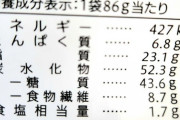 養成分表示:1袋86g当たり
ネルギー 427k
んぱく質 6.8g
質 23.1g
水化物 52.3g
－糖質 43.6g
－食物繊維 8.7g
塩相当量 1.7g